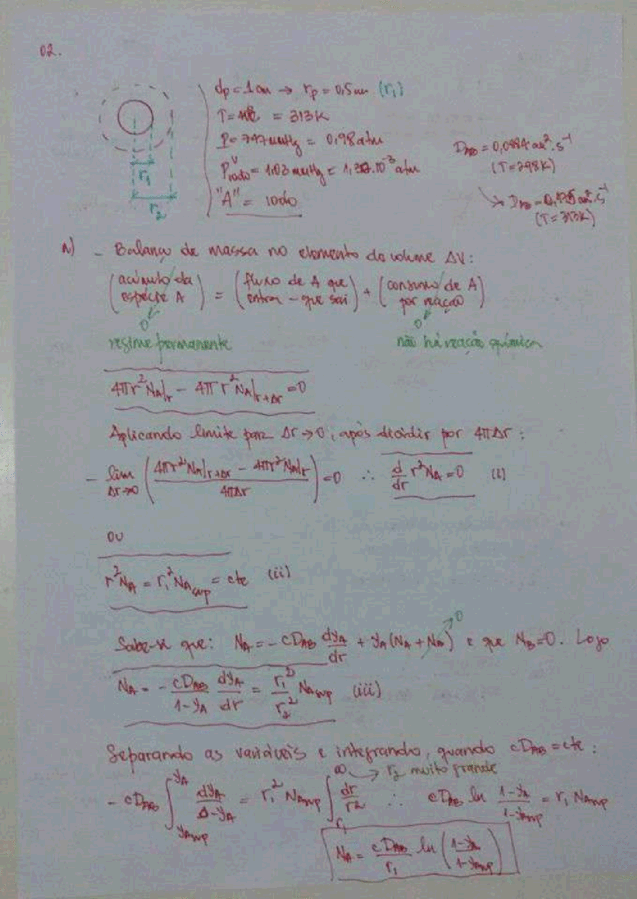 02.
dp = 1cm → rp = 0,5cm (r₁)
T = 40°C = 313K
P = 747 mmHg = 0,98 atm
Pᵛiodo = 1,03 mmHg = 10⁻³ atm
"A" = iodo
r₁
r₂
D_AB = 0,0484 cm².s⁻¹
(T=298K)
↘ D_AB = cm².s⁻¹
(T=313K)
a) - Balanço de massa no elemento de volume ΔV:
(acúmulo da espécie A) = (fluxo de A que entra - que sai) + (consumo de A por reação)
0 0
regime permanente não há reação química
4πr²N_A|r - 4πr²N_A|r+Δr = 0
Aplicando limite para Δr→0, após dividir por 4πΔr:
- lim Δr→0 ((4πr²N_A|r+Δr - 4πr²N_A|r)/4πΔr) = 0 ∴ d/dr r²N_A = 0 (i)
ou
r²N_A = r₁²N_Asup = cte (ii)
Sabe-se que: N_A = -cD_AB dy_A/dr + y_A(N_A + N_B) e que N_B = 0. Logo
0
N_A = - cD_AB/(1-y_A) dy_A/dr = r₁²/r₂² N_Asup (iii)
Separando as variáveis e integrando, quando cD_AB = cte:
∞ → r₂ muito grande
- cD_AB ∫_{y_Asup}^{y_A} dy_A/(1-y_A) = r₁² N_Asup ∫_{r₁}^{∞} dr/r² ∴ cD_AB ln (1-y_A)/(1-y_Asup) = r₁ N_Asup
N_A = cD_AB/r₁ ln ((1-y_A)/(1-y_Asup))